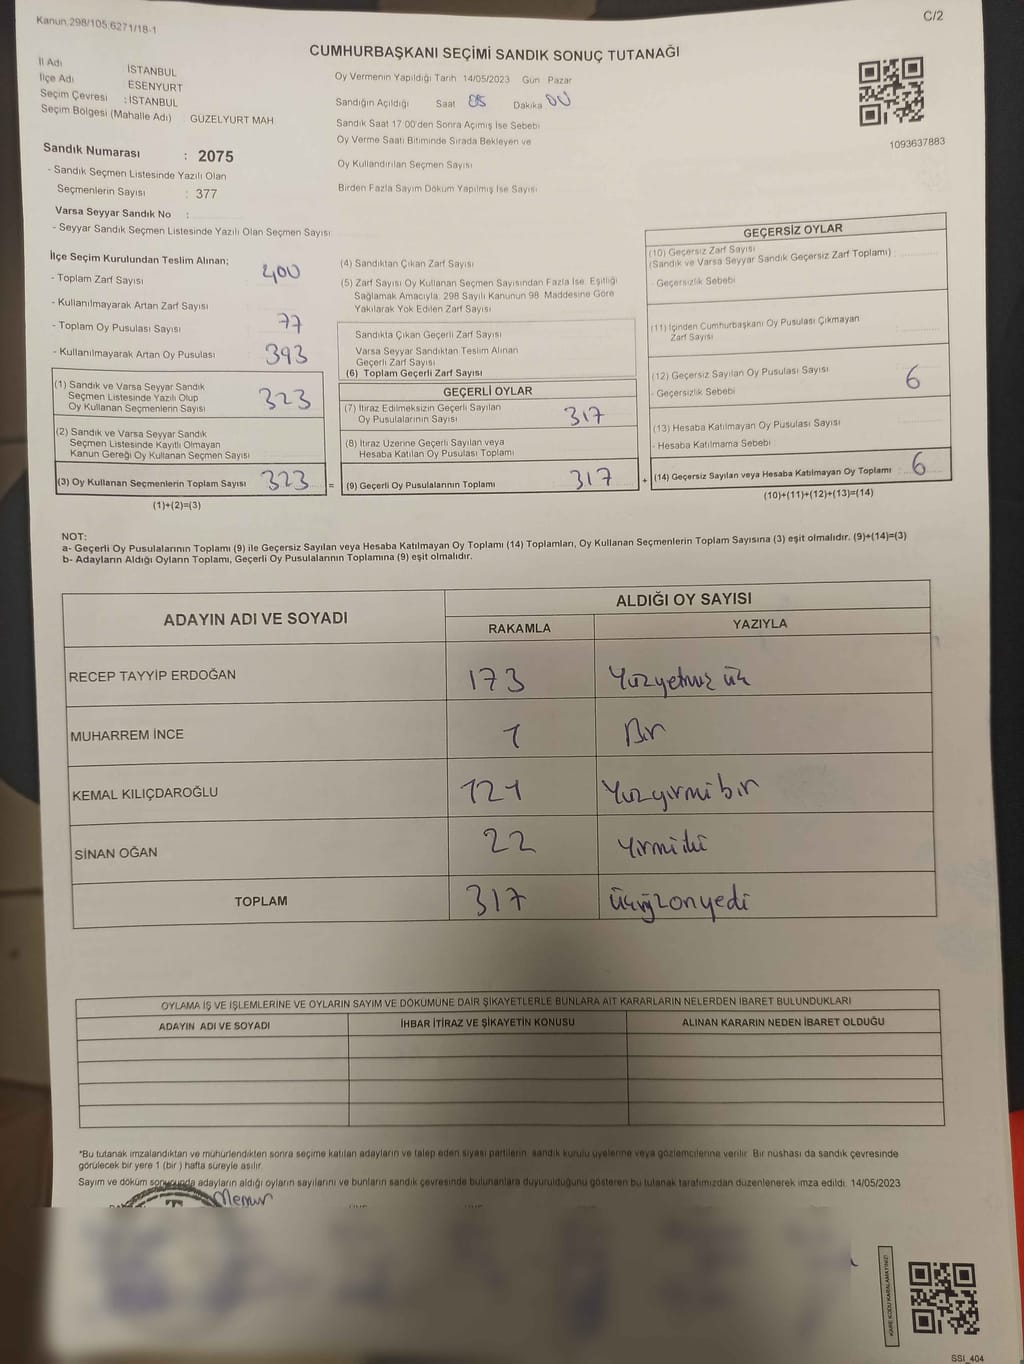 Kanun.298/105,6271/18-1
C/2
CUMHURBAŞKANI SEÇİMİ SANDIK SONUÇ TUTANAĞI
İl Adı İSTANBUL
İlçe Adı ESENYURT
Seçim Çevresi : İSTANBUL
Seçim Bölgesi (Mahalle Adı) GÜZELYURT MAH
Sandık Numarası : 2075
- Sandık Seçmen Listesinde Yazılı Olan
Seçmenlerin Sayısı : 377
Varsa Seyyar Sandık No :
- Seyyar Sandık Seçmen Listesinde Yazılı Olan Seçmen Sayısı
Oy Vermenin Yapıldığı Tarih 14/05/2023 Gün Pazar
Sandığın Açıldığı Saat Dakika
Sandık Saat 17:00'den Sonra Açımış İse Sebebi
Oy Verme Saati Bitiminde Sırada Bekleyen ve
Oy Kullandırılan Seçmen Sayısı
Birden Fazla Sayım Döküm Yapılmış İse Sayısı
1093637883
İlçe Seçim Kurulundan Teslim Alınan;
- Toplam Zarf Sayısı 400
- Kullanılmayarak Artan Zarf Sayısı 77
- Toplam Oy Pusulası Sayısı
- Kullanılmayarak Artan Oy Pusulası 393
(1) Sandık ve Varsa Seyyar Sandık
Seçmen Listesinde Yazılı Olup
Oy Kullanan Seçmenlerin Sayısı 323
(2) Sandık ve Varsa Seyyar Sandık
Seçmen Listesinde Kayıtlı Olmayan
Kanun Gereği Oy Kullanan Seçmen Sayısı
(3) Oy Kullanan Seçmenlerin Toplam Sayısı 323 =
(1)+(2)=(3)
(4) Sandıktan Çıkan Zarf Sayısı
(5) Zarf Sayısı Oy Kullanan Seçmen Sayısından Fazla İse, Eşitliği
Sağlamak Amacıyla, 298 Sayılı Kanunun 98. Maddesine Göre
Yakılarak Yok Edilen Zarf Sayısı
Sandıkta Çıkan Geçerli Zarf Sayısı
Varsa Seyyar Sandıktan Teslim Alınan
Geçerli Zarf Sayısı
(6) Toplam Geçerli Zarf Sayısı
GEÇERLİ OYLAR
(7) İtiraz Edilmeksizin Geçerli Sayılan
Oy Pusulalarının Sayısı 317
(8) İtiraz Üzerine Geçerli Sayılan veya
Hesaba Katılan Oy Pusulası Toplamı
(9) Geçerli Oy Pusulalarının Toplamı 317 +
GEÇERSİZ OYLAR
(10) Geçersiz Zarf Sayısı
(Sandık ve Varsa Seyyar Sandık Geçersiz Zarf Toplamı)
- Geçersizlik Sebebi
(11) İçinden Cumhurbaşkanı Oy Pusulası Çıkmayan
Zarf Sayısı
(12) Geçersiz Sayılan Oy Pusulası Sayısı 6
- Geçersizlik Sebebi
(13) Hesaba Katılmayan Oy Pusulası Sayısı
- Hesaba Katılmama Sebebi
(14) Geçersiz Sayılan veya Hesaba Katılmayan Oy Toplamı 6
(10)+(11)+(12)+(13)=(14)
NOT:
a- Geçerli Oy Pusulalarının Toplamı (9) ile Geçersiz Sayılan veya Hesaba Katılmayan Oy Toplamı (14) Toplamları, Oy Kullanan Seçmenlerin Toplam Sayısına (3) eşit olmalıdır. (9)+(14)=(3)
b- Adayların Aldığı Oyların Toplamı, Geçerli Oy Pusulalarının Toplamına (9) eşit olmalıdır.
ADAYIN ADI VE SOYADI ALDIĞI OY SAYISI
RAKAMLA YAZIYLA
RECEP TAYYİP ERDOĞAN 173 Yüzyetmiş üç
MUHARREM İNCE 1 Bir
KEMAL KILIÇDAROĞLU 121 Yüzyirmi bir
SİNAN OĞAN 22 Yirmi iki
TOPLAM 317 Üçyüzonyedi
OYLAMA İŞ VE İŞLEMLERİNE VE OYLARIN SAYIM VE DÖKÜMÜNE DAİR ŞİKAYETLERLE BUNLARA AİT KARARLARIN NELERDEN İBARET BULUNDUKLARI
ADAYIN ADI VE SOYADI İHBAR İTİRAZ VE ŞİKAYETİN KONUSU ALINAN KARARIN NEDEN İBARET OLDUĞU
*Bu tutanak imzalandıktan ve mühürlendikten sonra seçime katılan adayların ve talep eden siyasi partilerin, sandık kurulu üyelerine veya gözlemcilerine verilir. Bir nüshası da sandık çevresinde
görülecek bir yere 1 (bir ) hafta süreyle asılır.
Sayım ve döküm sonucunda adayların aldığı oyların sayılarını ve bunların sandık çevresinde bulunanlara duyurulduğunu gösteren bu tutanak tarafımızdan düzenlenerek imza edildi. 14/05/2023
Memur
KARE KODU KARALAMAYINIZ!
SSI_404